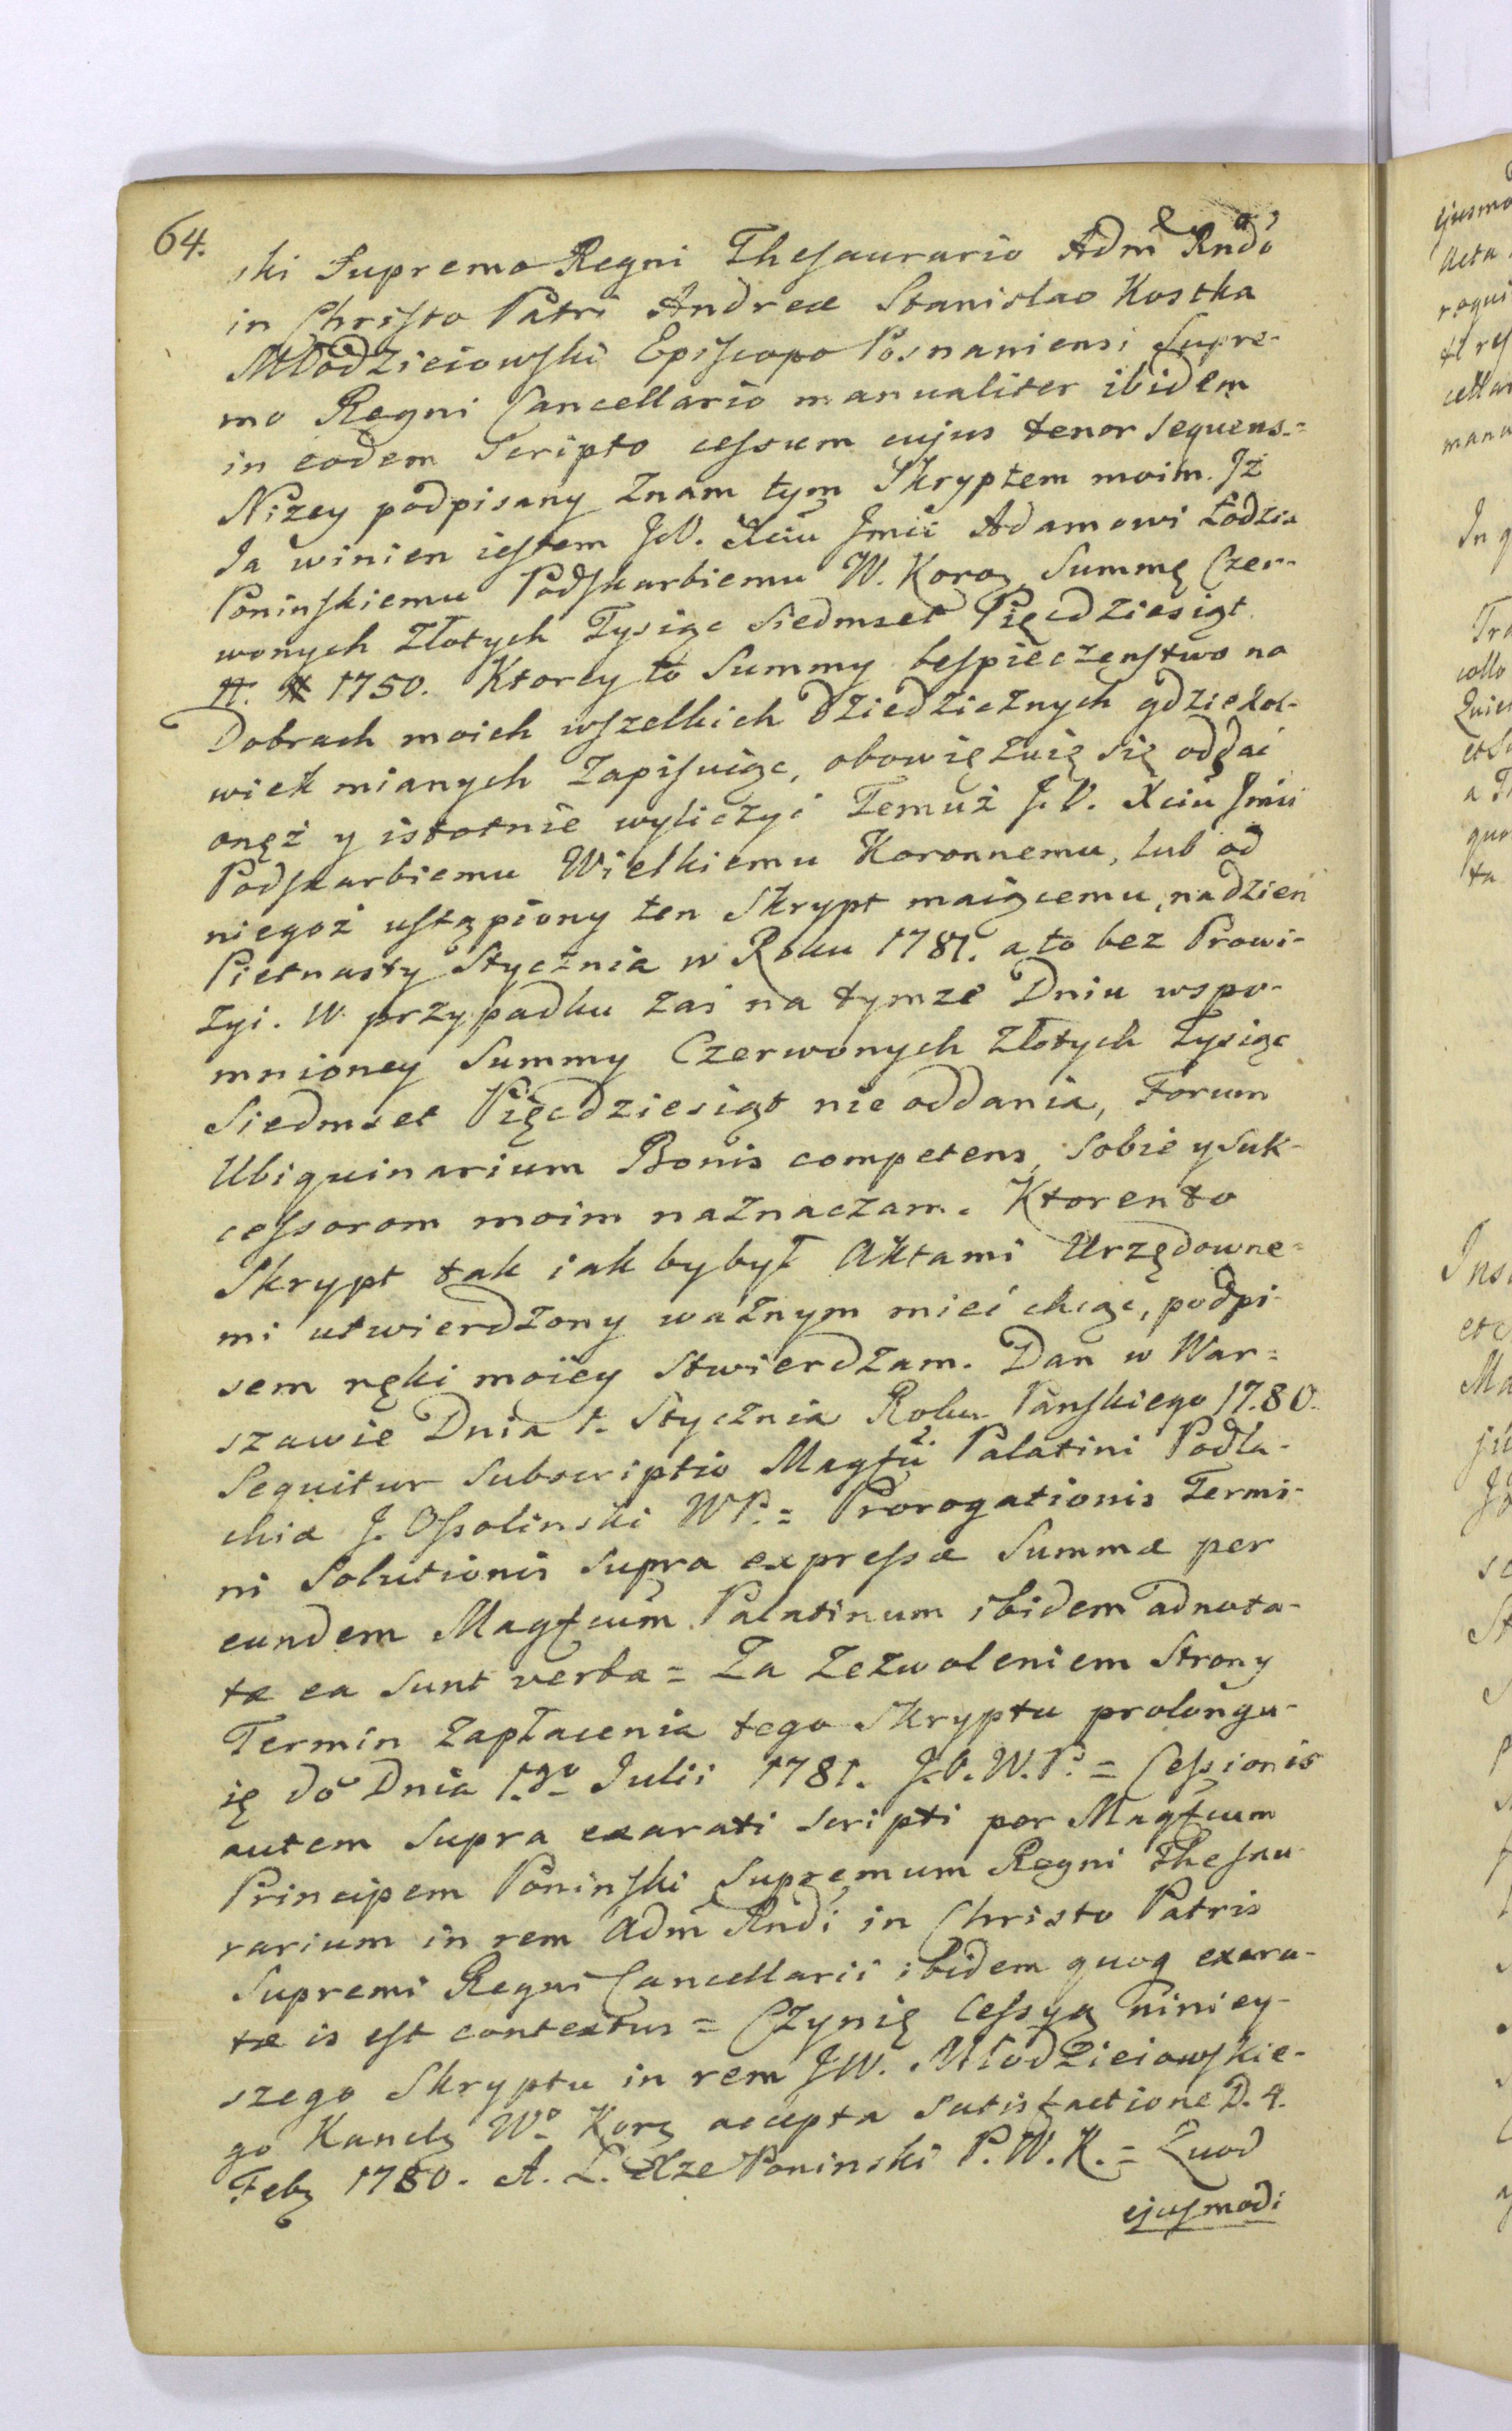 64.
ski Supremo Regni Thesaurario Adm Rndo
in Christo Patri Andreæ Stanislao Kostka
Młodzieiowski Episcopo Posnaniensi Supre-
mo Regni Cancellario manualiter ibidem
in eodem Scripto cessum cujus tenor sequens.=
Niżey podpisany Znam tym Skryptem moim. Jż
Ja winien iestem J.O. Xciu Jmci Adamowi Łodzia
Poninskiemu Podskarbiemu W. Koroz Summę Czer-
wonych Złotych Tysiąc Siedmset Pięcdziesiąt
#. # 1750. Ktorey to Summy bespieczenstwo na
Dobrach moich wszelkich Dziedzicznych gdziekol-
wiek mianych Zapisuiąc, obowięzuię się oddać
onęż y istotnie wyliczyć Temuż J.O. Xciu Jmci
Podskarbiemu Wielkiemu Koronnemu, lub od
niegoż ustąpiony ten Skrypt maiącemu, na dzień
Pietnasty Stycznia w Roku 1781. a to bez Prowi-
zyi. W przypadku zaś na tymze Dniu wspo-
mnioney Summy Czerwonych Złotych Tysiąc
Siedmset Pięcdziesiąt nie oddania, Forum
Ubiquinarium Bonis competens, Sobie y Suk-
cessorom moim naznaczam. Ktoren to
Skrypt tak iak by był Aktami Urzędowne-
mi utwierdzony ważnym mieć chcąc, podpi-
sem ręki moiey stwierdzam. Dan w War=
szawie Dnia 1. Stycznia Roku Panskiego 1780.
Sequitur Subscriptio Magfci Palatini Podla-
chiæ J. Ossolinski WP.= Prorogationis Termi-
ni Solutionis Supra expressæ Summæ per
eundem Magfcum Palatinum ibidem adnota-
tæ ea sunt verba = Za Zezwoleniem Strony
Termin Zapłacenia tego Skryptu prolongu-
ię do Dnia 1.go Julii 1781. J.O.W.P. = Cessionis
autem supra exarati scripti per Magfcum
Principem Poninski Supremum Regni Thesau-
rarium in rem Adm Rndi in Christo Patris
Supremi Regni Cancellarii ibidem quoq exara-
tæ is est contextus = Czynię Cessyą niniey-
szego Skryptu in rem JW. Młodzieiowskie-
go Kanclz Wo Korz accepta satisfactione D. 4.
Febz 1780. A. L. Xze Poninski P.W.K. = Quod
ejusmodi